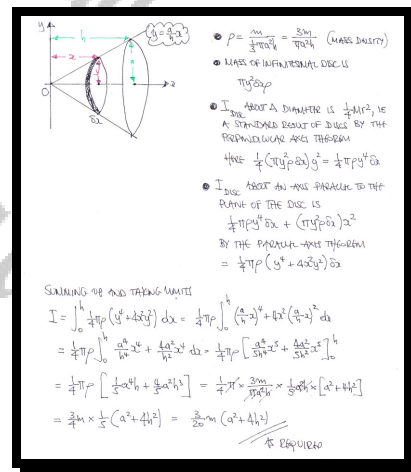 y
h
x
y = a/h x
O
y
a
x
δx
• ρ = m / (1/3 πa²h) = 3m / (πa²h) (MASS DENSITY)
• MASS OF INFINITESIMAL DISC IS
πy²δxρ
• I_DISC ABOUT A DIAMETER IS 1/4 Mr², IE
A STANDARD RESULT OF DISCS BY THE
PERPENDICULAR AXES THEOREM
HERE 1/4 (πy²ρδx)y² = 1/4 πρy⁴δx
• I_DISC ABOUT AN AXIS PARALLEL TO THE
PLANE OF THE DISC IS
1/4 πρy⁴δx + (πy²ρδx)x²
BY THE PARALLEL AXES THEOREM
= 1/4 πρ (y⁴ + 4x²y²) δx
SUMMING UP AND TAKING LIMITS
I = ∫₀ʰ 1/4 πρ (y⁴ + 4x²y²) dx = 1/4 πρ ∫₀ʰ (a/h x)⁴ + 4x² (a/h x)² dx
= 1/4 πρ ∫₀ʰ a⁴/h⁴ x⁴ + 4a²/h² x⁴ dx = 1/4 πρ [ a⁴/5h⁴ x⁵ + 4a²/5h² x⁵ ]₀ʰ
= 1/4 πρ [ 1/5 a⁴h + 4/5 a²h³ ] = 1/4 π × 3m/πa²h × 1/5 a²h × [a² + 4h²]
= 3/4 m × 1/5 (a² + 4h²) = 3/20 m (a² + 4h²)
AS REQUIRED